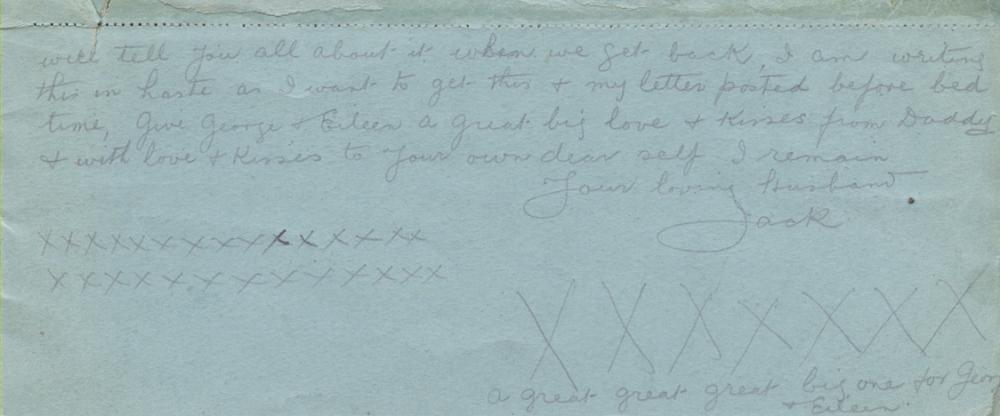 will tell you all about it when we get back, I am writing
this in haste as I want to get this + my letter posted before bed
time, Give George + Eileen a great big love + kisses from Daddy
+ with love + kisses to your own dear self I remain
Your loving Husband
Jack
XXXXXXXXXXXXXXXXX
XXXXXXXXXXXXXXX
XXXXXXX
a great great great big one for Geor
+ Eileen